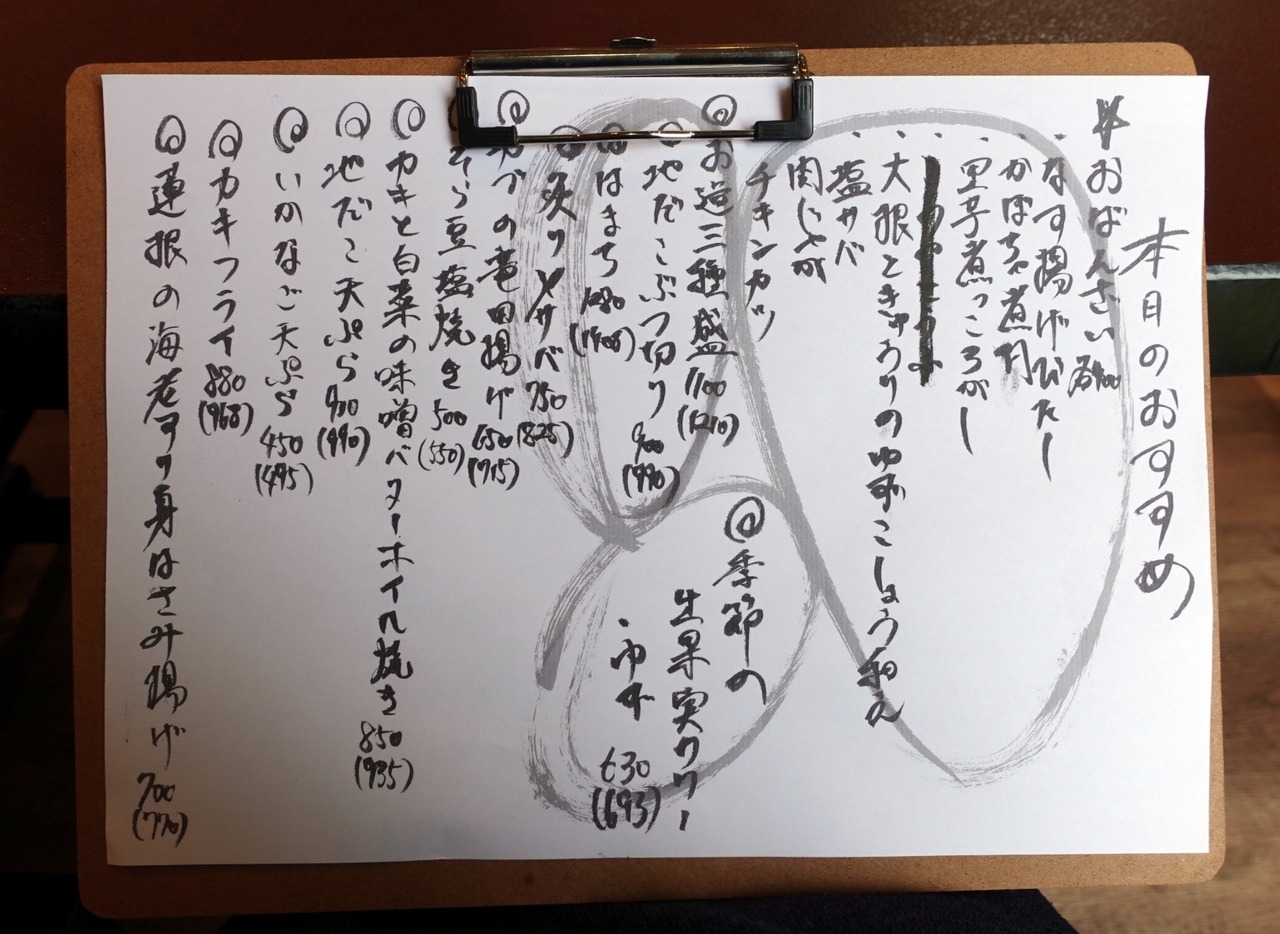 本日のおすすめ
おばんざい 各400
・なす揚げびたし
・かぼちゃ煮付
・里芋煮っころがし
・大根ときゅうりのゆずこしょう和え
・塩サバ
・肉じゃが
チキンカツ
◎お造三種盛 1100 (1210)
◎地だこぶつ切り 900 (990)
◎はまち
◎炙り〆サバ 750 (825)
◎の竜田揚げ 650 (715)
◎そら豆塩焼き 500 (550)
◎カキと白菜の味噌バターホイル焼き 850 (935)
◎地だこ天ぷら 900 (990)
◎いかなご天ぷら 450 (495)
◎カキフライ 880 (968)
◎蓮根の海老すり身はさみ揚げ 700 (770)
◎季節の
生果実サワー
・ゆず 630 (693)